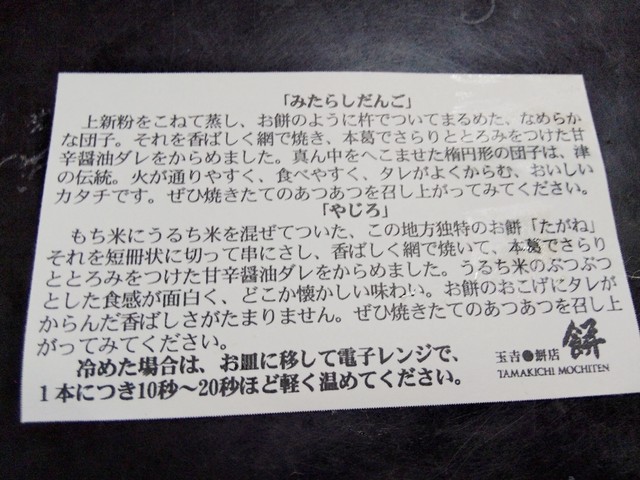 「みたらしだんご」
上新粉をこねて蒸し、お餅のように杵でついてまるめた、なめらか
な団子。それを香ばしく網で焼き、本葛でさらりととろみをつけた甘
辛醤油ダレをからめました。真ん中をへこませた楕円形の団子は、津
の伝統。火が通りやすく、食べやすく、タレがよくからむ、おいしい
カタチです。ぜひ焼きたてのあつあつを召し上がってみてください。
「やじろ」
もち米にうるち米を混ぜてついた、この地方独特のお餅「たがね」
それを短冊状に切って串にさし、香ばしく網で焼いて、本葛でさらり
ととろみをつけた甘辛醤油ダレをからめました。うるち米のぶつぶつ
とした食感が面白く、どこか懐かしい味わい。お餅のおこげにタレが
からんだ香ばしさがたまりません。ぜひ焼きたてのあつあつを召し上
がってみてください。
冷めた場合は、お皿に移して電子レンジで、
1本につき10秒〜20秒ほど軽く温めてください。
玉吉●餅店
餅
TAMAKICHI MOCHITEN